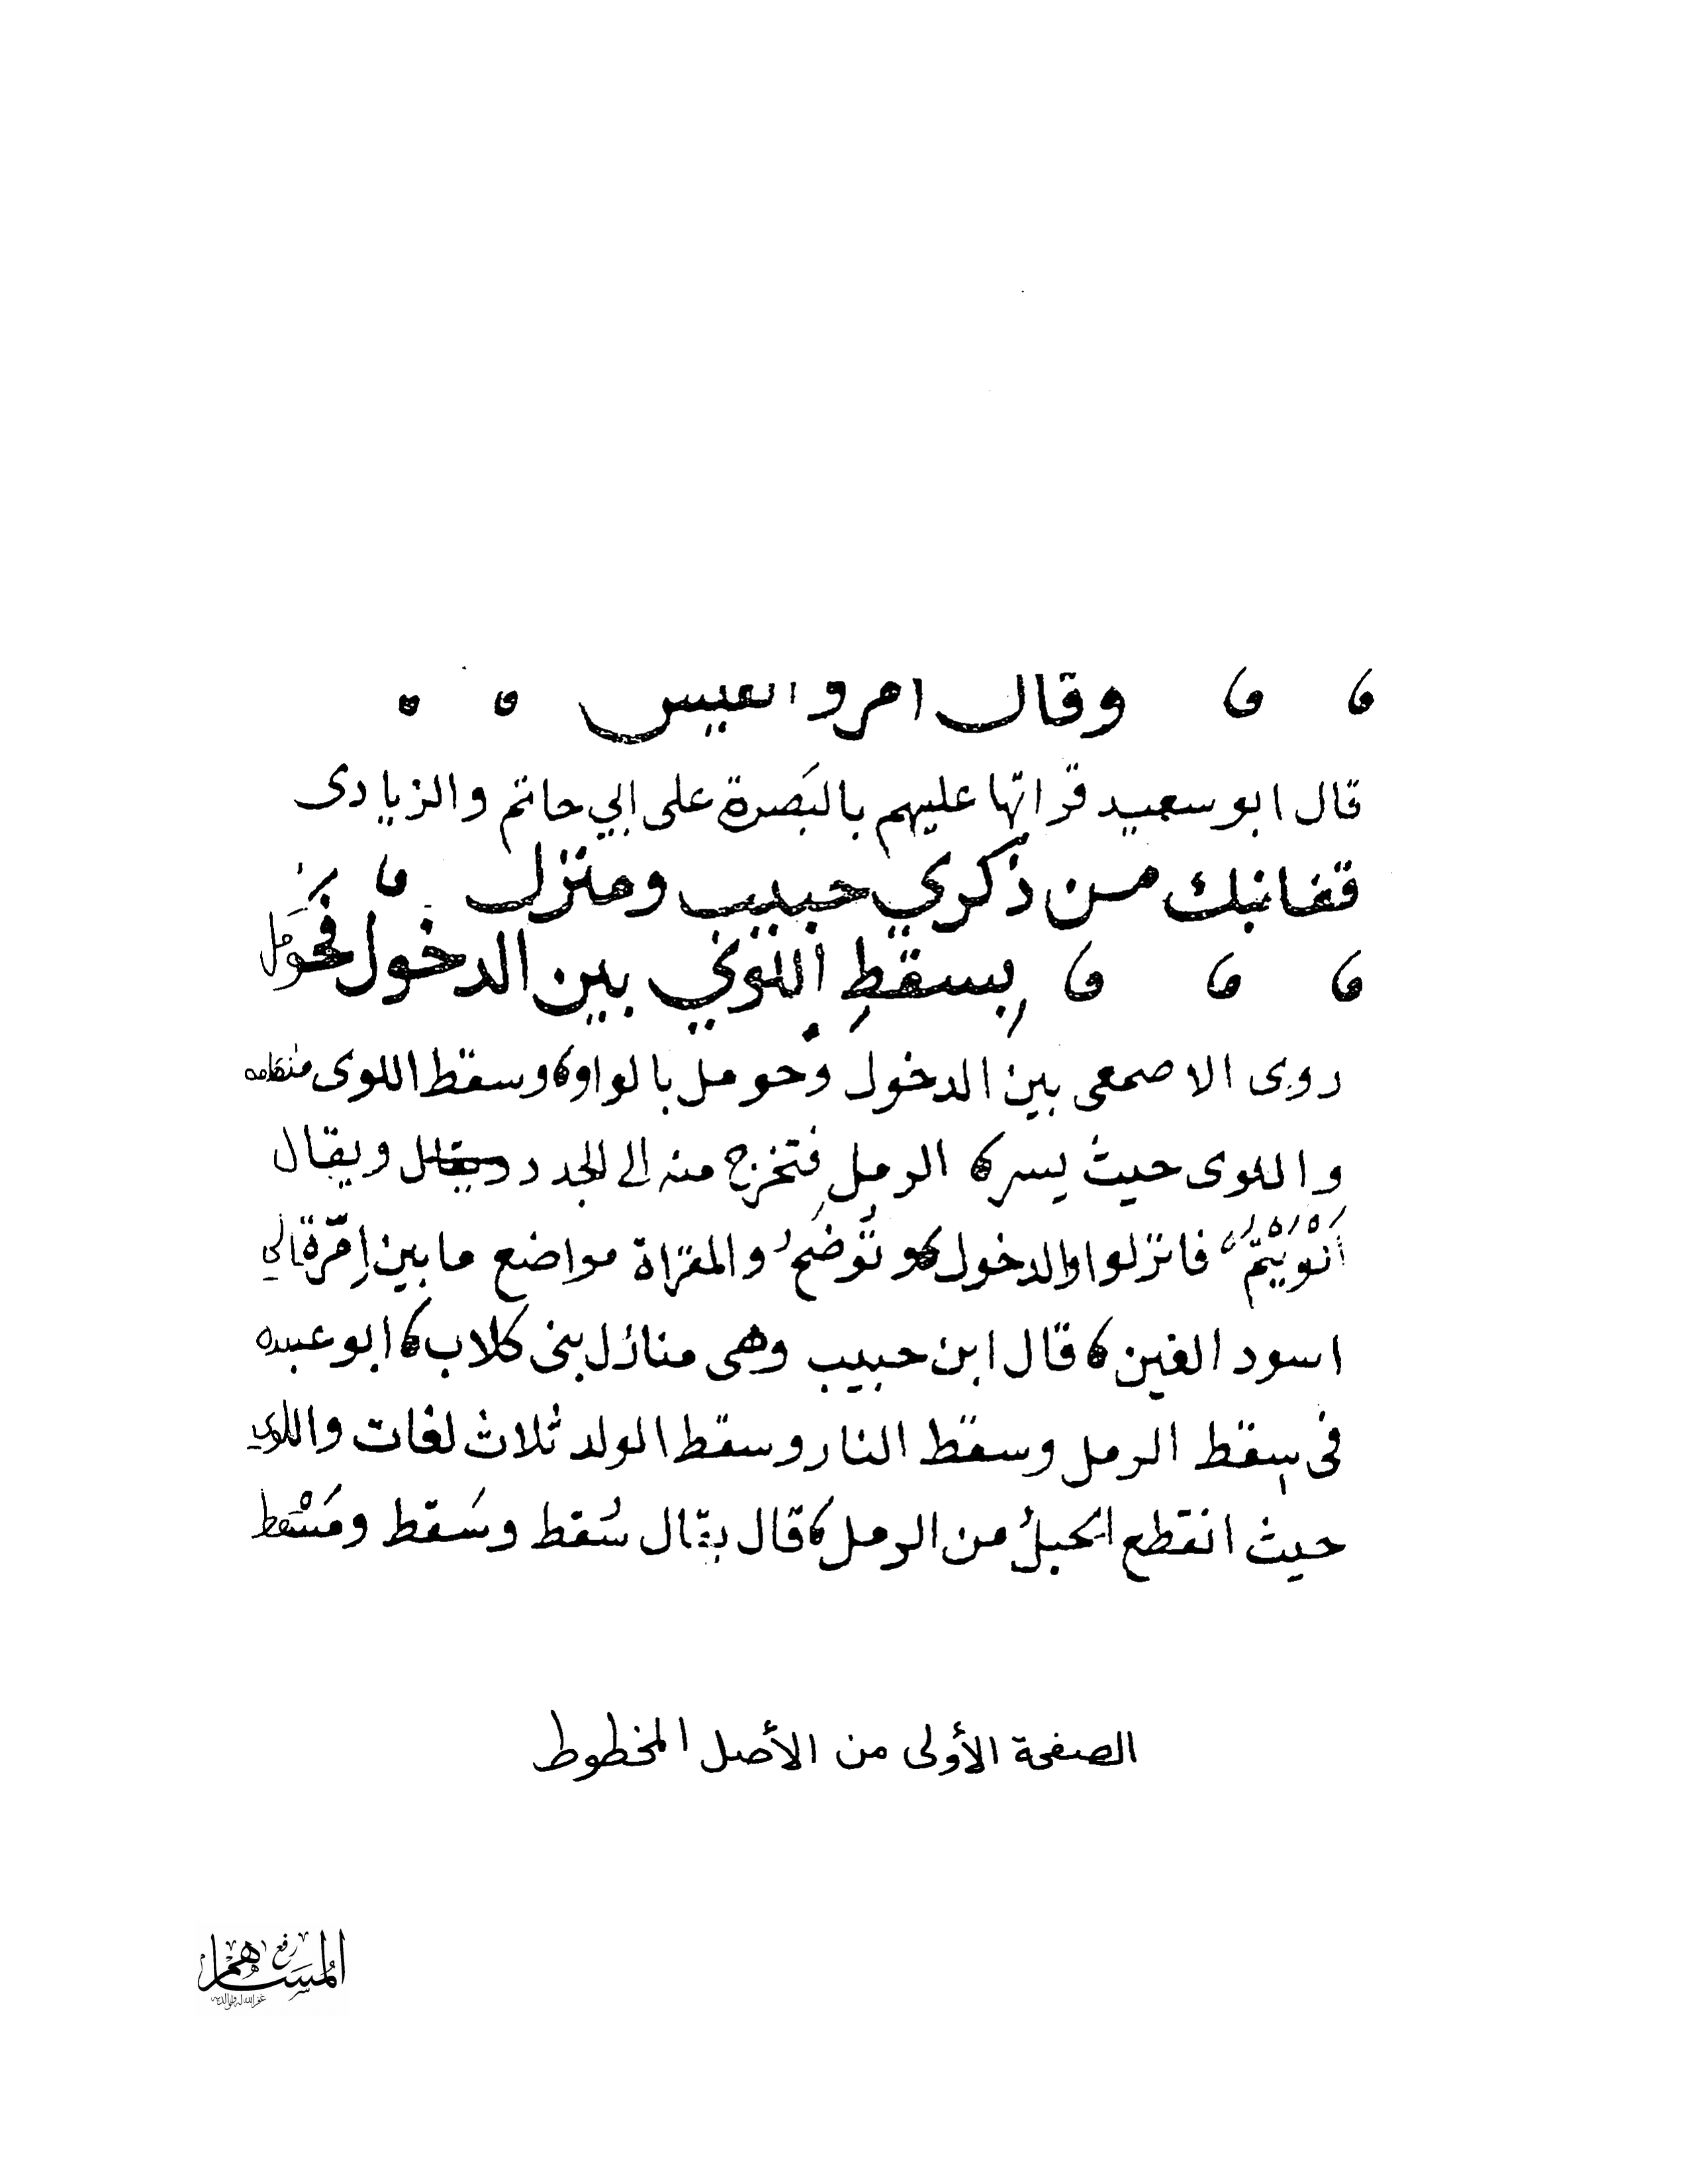 وقال امرو القيس
قال ابو سعيد قراتها عليهم بالبَصرة على ابي حاتم والزيادى
قفانبك من ذكري حبيب ومنزل
بِسقطِ اللوي بين الدخول فحَومَل
روى الاصمعى بين الدخول وحومل بالواو وسقط اللوى منقطعه
واللوى حيث يسترق الرمل فتخرج منه الى الجدد ويقال
أَنْوَيْتُمْ فانزلوا والدخول وتُوضحُ والمقراة مواضع ما بين اِمّرة الي
اسود العين قال ابن حبيب وهى منازل بنى كلاب ابو عبيده
فى سِقط الرمل وسقط النار وسقط الولد ثلاث لغات واللوي
حيث انقطع الحبلُ من الرمل قال يقال سُقط وسَقط ومَسْقط
الصفحة الأولى من الأصل المخطوط
رفع
المساهم
غفر الله له ولوالديه